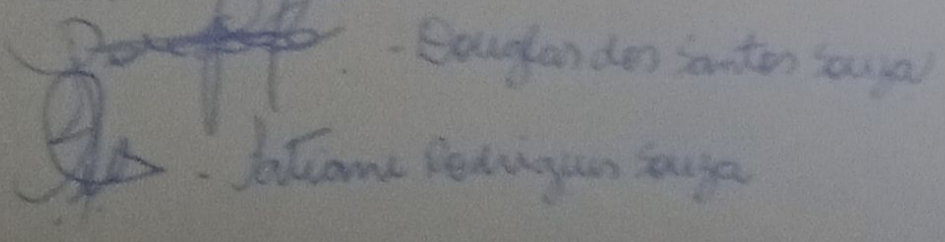 - Douglas dos Santos Souza
- Tatiane Rodrigues Souza